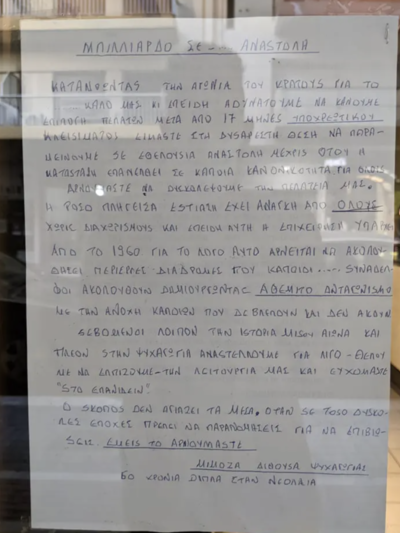 ΜΠΙΛΛΙΑΡΔΟ ΣΕ -... ΑΝΑΣΤΟΛΗ
ΚΑΤΑΝΟΩΝΤΑΣ ΤΗΝ ΑΓΩΝΙΑ ΤΟΥ ΚΡΑΤΟΥΣ ΓΙΑ ΤΟ
ΚΑΛΟ ΜΑΣ ΚΙ ΕΠΕΙΔΗ ΑΔΥΝΑΤΟΥΜΕ ΝΑ ΚΑΝΟΥΜΕ
ΕΠΙΛΟΓΗ ΠΕΛΑΤΩΝ ΜΕΤΑ ΑΠΟ 17 ΜΗΝΕΣ ΥΠΟΧΡΕΩΤΙΚΟΥ
ΚΛΕΙΣΙΜΑΤΟΣ ΕΙΜΑΣΤΕ ΣΤΗ ΔΥΣΑΡΕΣΤΗ ΘΕΣΗ ΝΑ ΠΑΡΑ-
ΜΕΙΝΟΥΜΕ ΣΕ ΕΘΕΛΟΥΣΙΑ ΑΝΑΣΤΟΛΗ ΜΕΧΡΙΣ ΟΤΟΥ Η
ΚΑΤΑΣΤΑΣΗ ΕΠΑΝΕΛΘΕΙ ΣΕ ΚΑΠΟΙΑ ΚΑΝΟΝΙΚΟΤΗΤΑ ΓΙΑ ΟΛΟΥΣ
ΝΑ ΔΥΣΚΟΛΕΨΟΥΜΕ ΤΗΝ ΠΕΛΑΤΕΙΑ ΜΑΣ.
Η ΤΟΣΟ ΠΛΗΓΕΙΣΑ ΕΣΤΙΑΣΗ ΕΧΕΙ ΑΝΑΓΚΗ ΑΠΟ ΟΛΟΥΣ
ΧΩΡΙΣ ΔΙΑΧΩΡΙΣΜΟΥΣ ΚΑΙ ΕΠΕΙΔΗ ΑΥΤΗ Η ΕΠΙΧΕΙΡΗΣΗ ΥΠΑΡΧΕΙ
ΑΠΟ ΤΟ 1960 ΓΙΑ ΤΟ ΛΟΓΟ ΑΥΤΟ ΑΡΝΕΙΤΑΙ ΝΑ ΑΚΟΛΟΥ-
ΘΗΣΕΙ ΠΕΡΙΕΡΓΕΣ ΔΙΑΔΡΟΜΕΣ ΠΟΥ ΚΑΠΟΙΟΙ .... ΣΥΝΑΔΕΛ-
ΦΟΙ ΑΚΟΛΟΥΘΟΥΝ ΔΗΜΙΟΥΡΓΩΝΤΑΣ ΑΘΕΜΙΤΟ ΑΝΤΑΓΩΝΙΣΜΟ
ΜΕ ΤΗΝ ΑΝΟΧΗ ΚΑΠΟΙΩΝ ΠΟΥ ΔΕ ΒΛΕΠΟΥΝ ΚΑΙ ΔΕΝ ΑΚΟΥΝ
ΣΕΒΟΜΕΝΟΙ ΛΟΙΠΟΝ ΤΗΝ ΙΣΤΟΡΙΑ ΜΙΣΟΥ ΑΙΩΝΑ ΚΑΙ
ΠΛΕΟΝ ΣΤΗΝ ΨΥΧΑΓΩΓΙΑ ΑΝΑΣΤΕΛΛΟΥΜΕ ΓΙΑ ΛΙΓΟ - ΘΕΛΟΥ
ΜΕ ΝΑ ΕΛΠΙΖΟΥΜΕ - ΤΗΝ ΛΕΙΤΟΥΡΓΙΑ ΜΑΣ ΚΑΙ ΕΥΧΟΜΑΣΤΕ
"ΣΤΟ ΕΠΑΝΙΔΕΙΝ".
Ο ΣΚΟΠΟΣ ΔΕΝ ΑΓΙΑΖΕΙ ΤΑ ΜΕΣΑ. ΟΤΑΝ ΣΕ ΤΟΣΟ ΔΥΣΚΟ-
ΛΕΣ ΕΠΟΧΕΣ ΠΡΕΠΕΙ ΝΑ ΠΑΡΑΝΟΜΗΣΕΙΣ ΓΙΑ ΝΑ ΕΠΙΒΙΩ-
ΣΕΙΣ ΕΜΕΙΣ ΤΟ ΑΡΝΟΥΜΑΣΤΕ
ΜΙΜΟΖΑ ΑΙΘΟΥΣΑ ΨΥΧΑΓΩΓΙΑΣ
60 ΧΡΟΝΙΑ ΔΙΠΛΑ ΣΤΗΝ ΝΕΟΛΑΙΑ